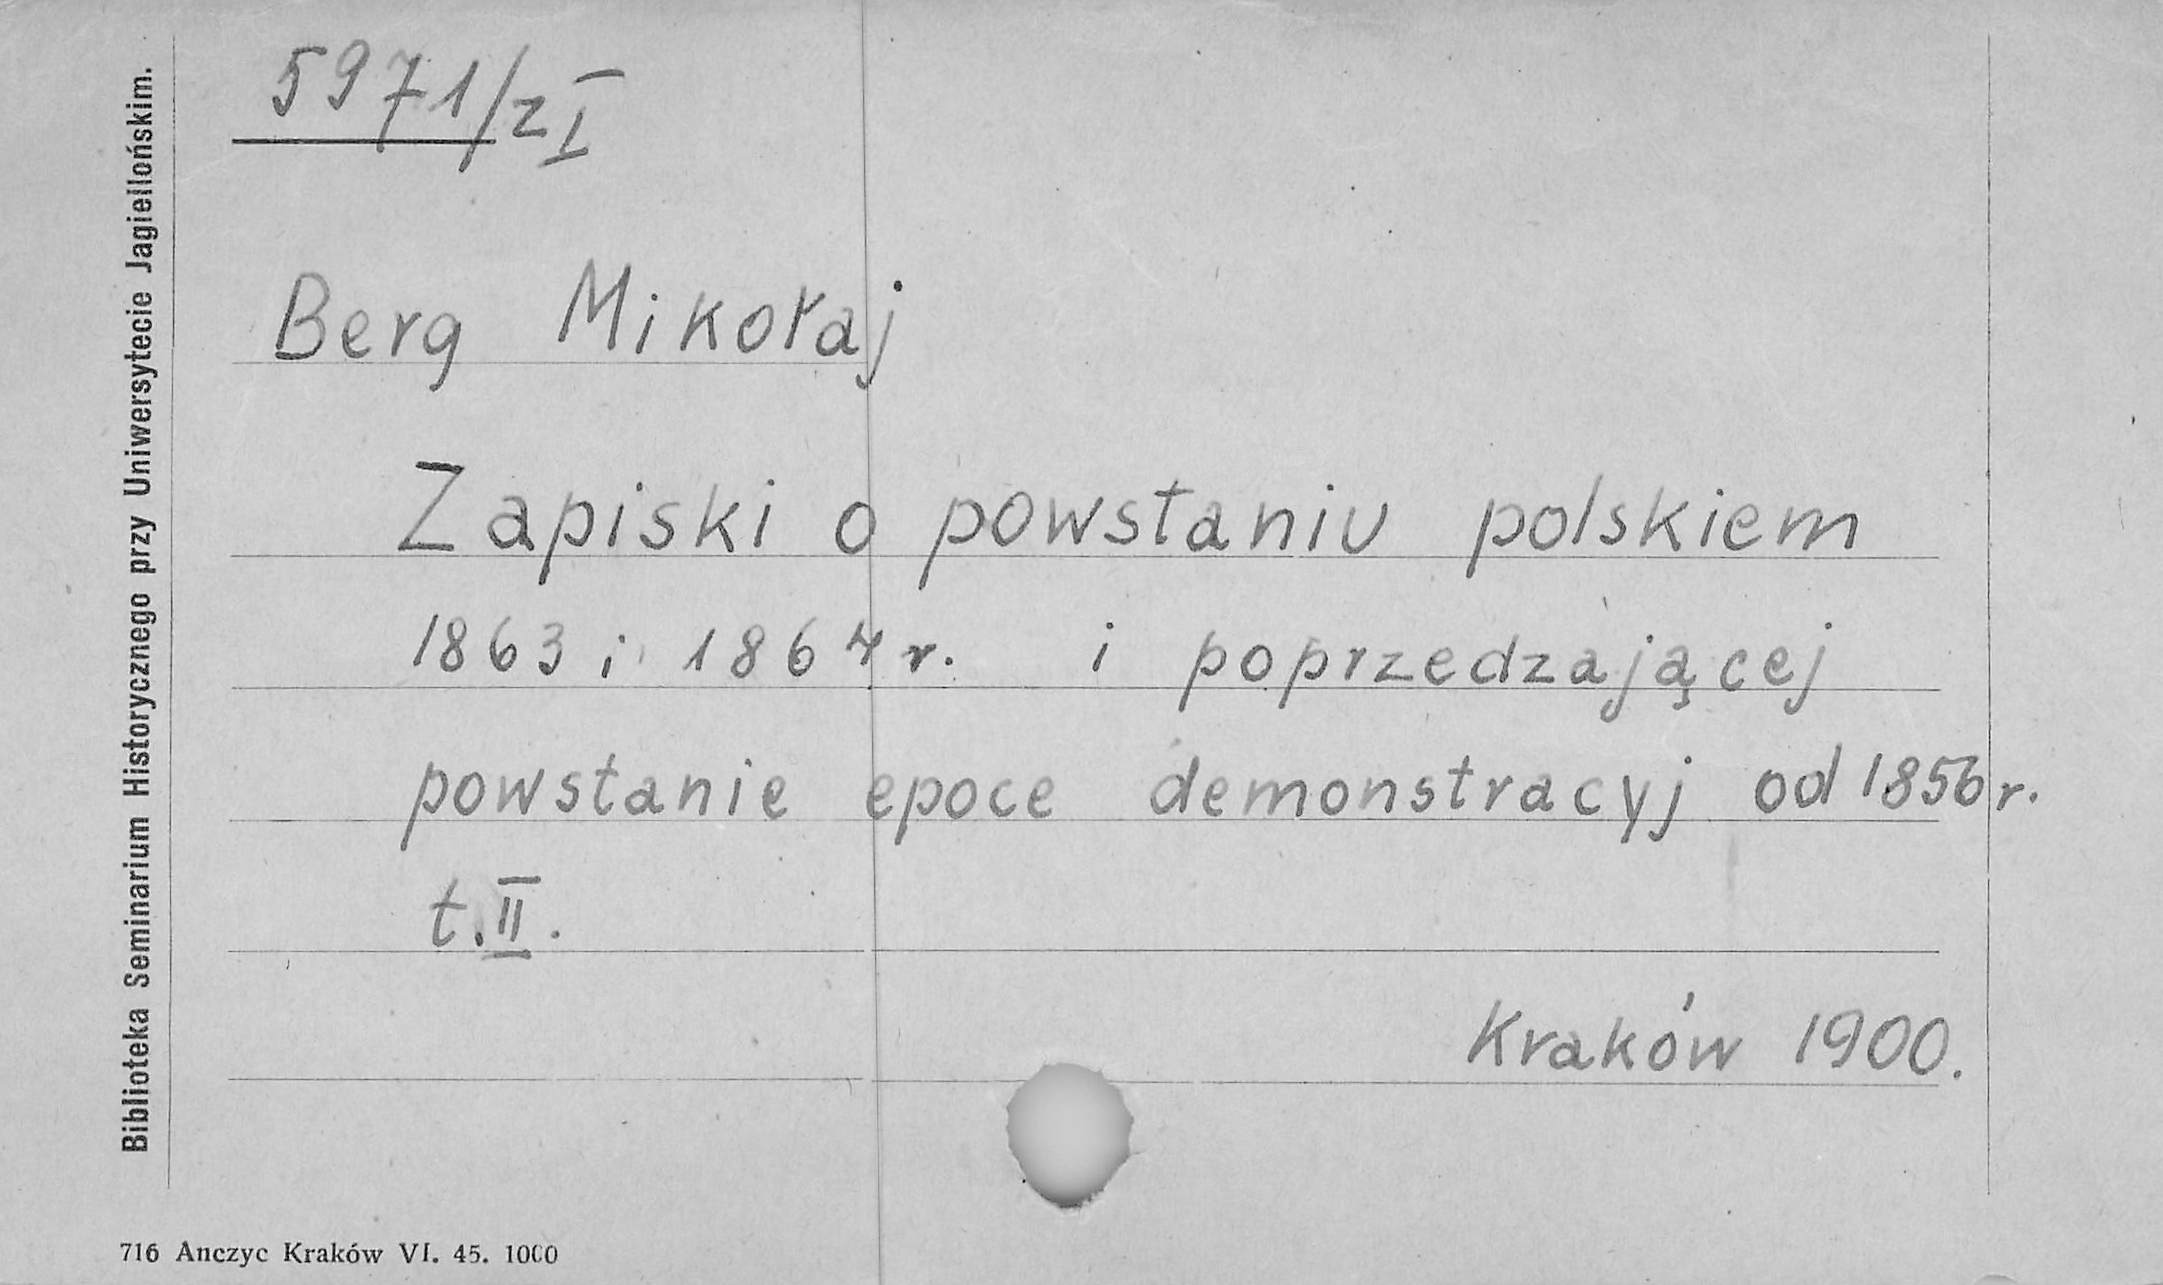 5971/z I
Berg Mikołaj
Zapiski o powstaniu polskiem
1863 i 1864 r. i poprzedzającej
powstanie epoce demonstracyj od 1856 r.
t. II.
Kraków 1900.
Biblioteka Seminarium Historycznego przy Uniwersytecie Jagiellońskim.
716 Anczyc Kraków VI. 45. 1000